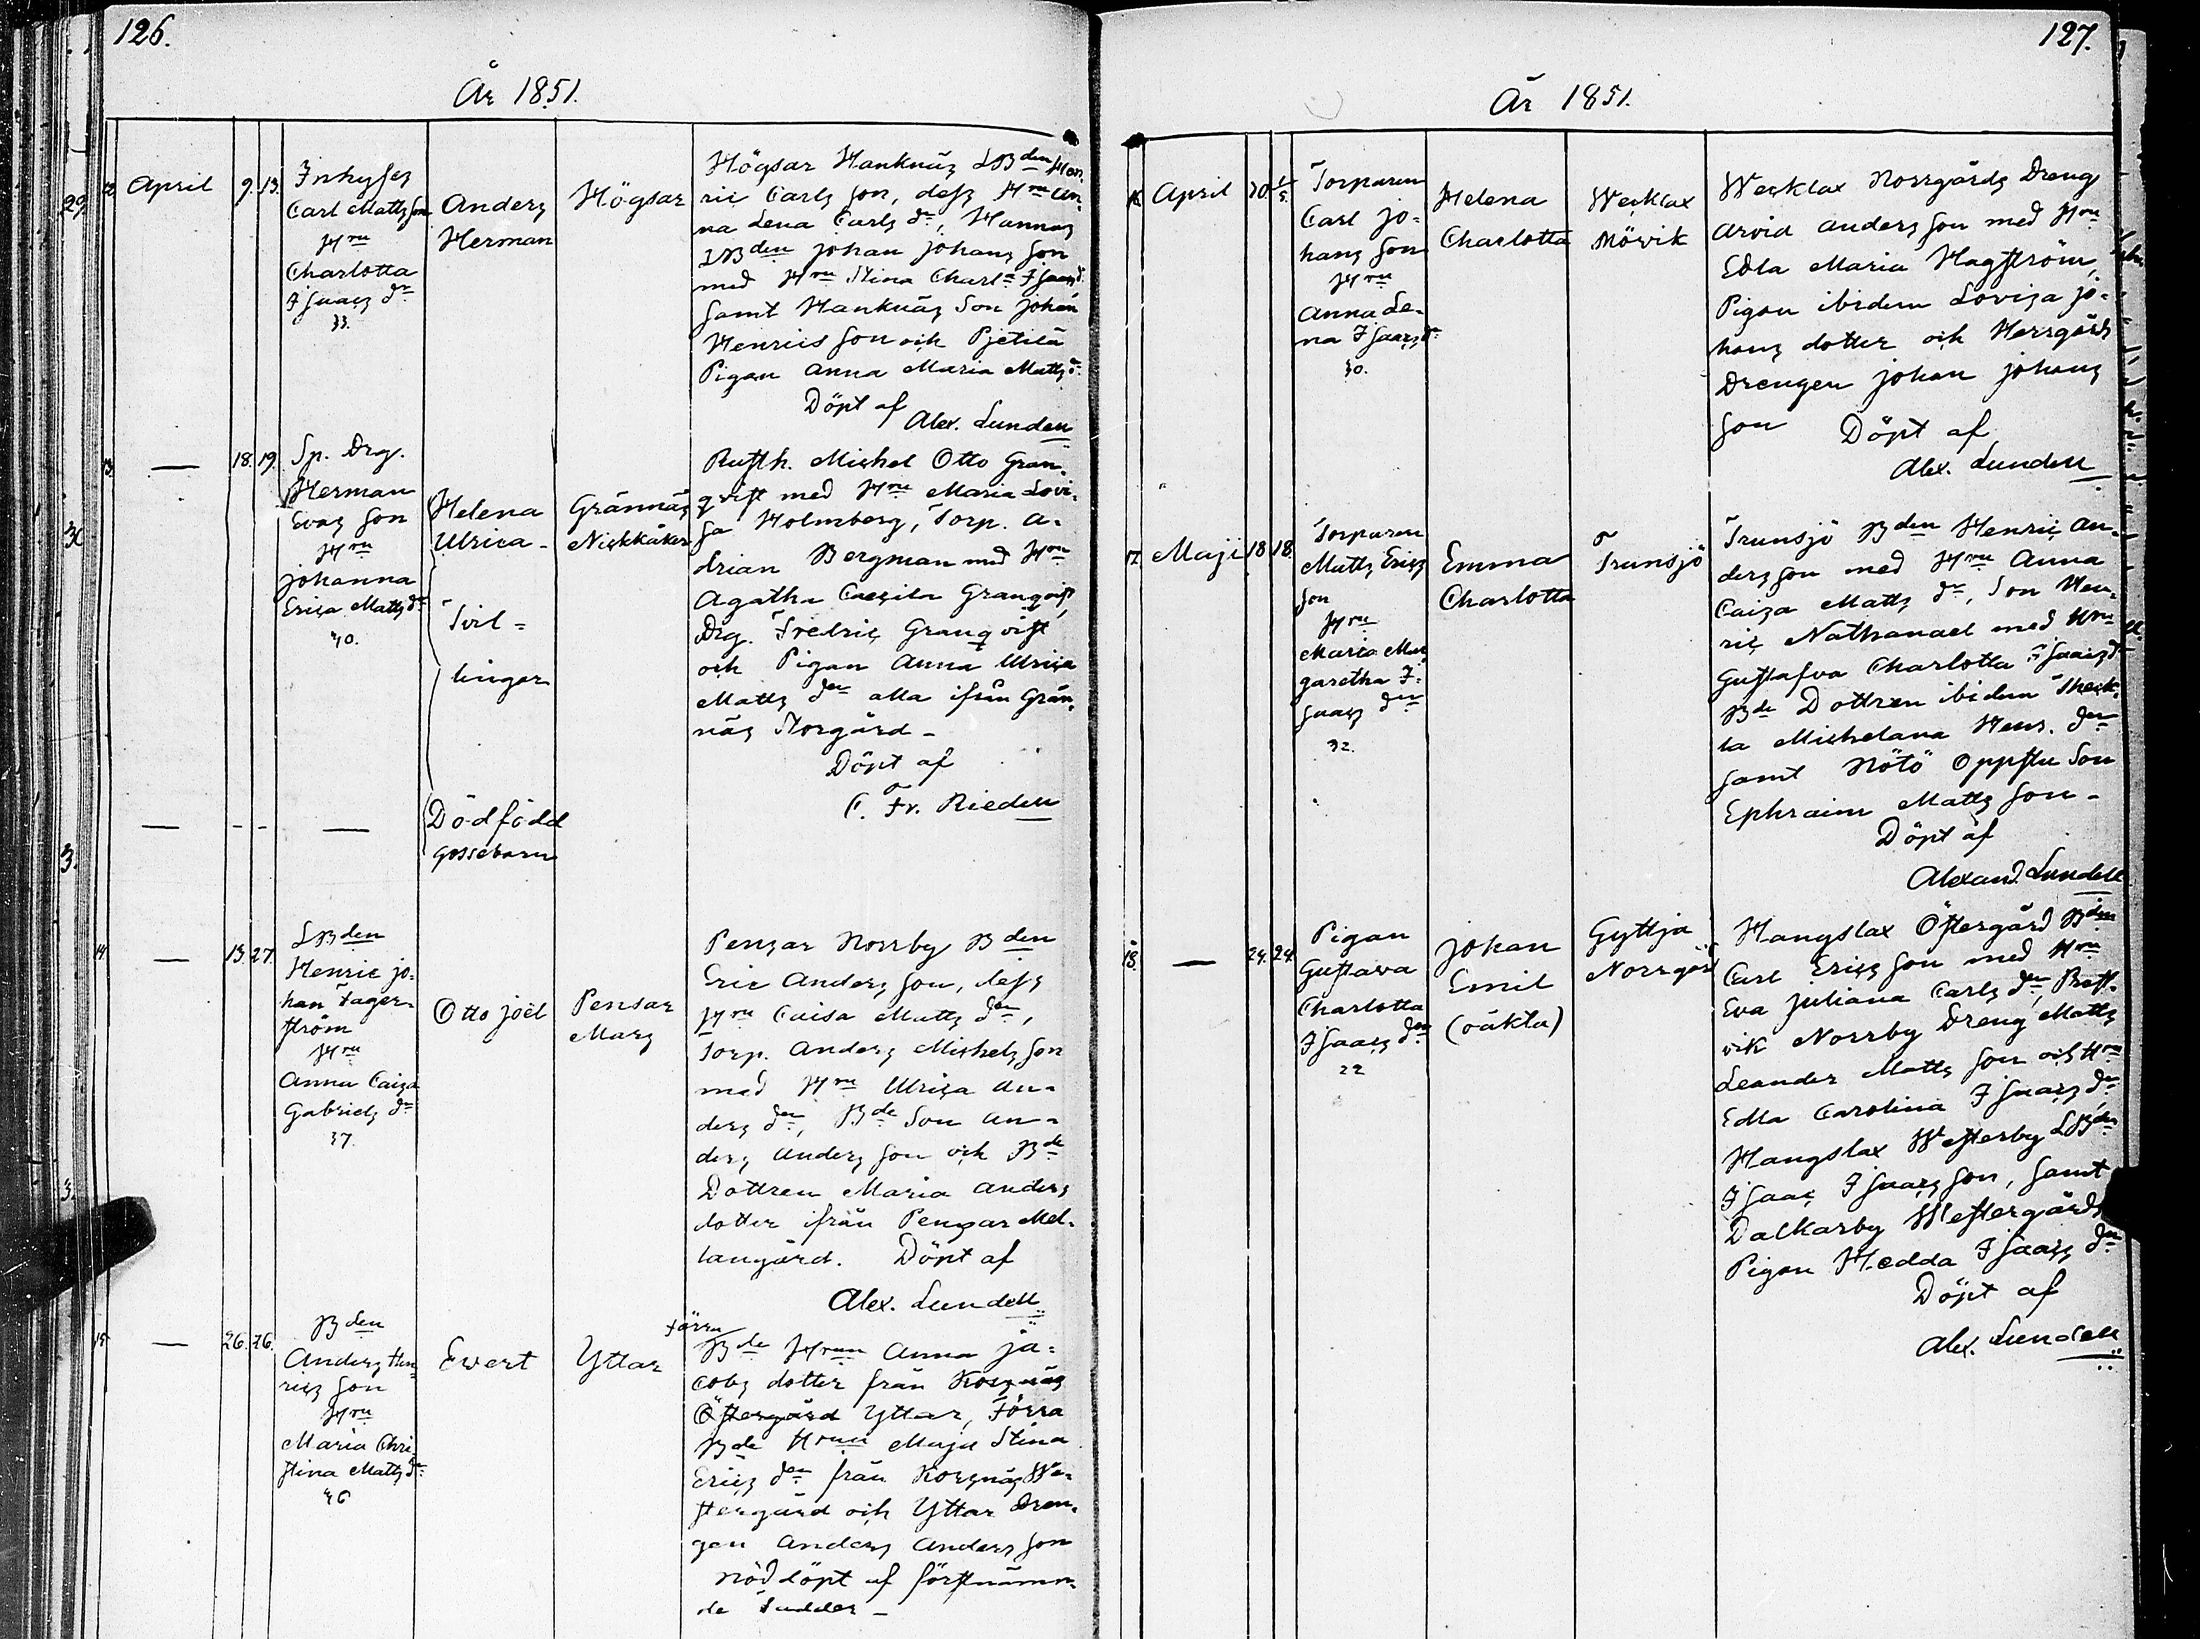 126.
År 1851.
12. April 9. 13.
Inhyses
Carl Matts son
Hru
Charlotta
Isaacs dr
33.
Anders
Herman
Högsar
Högsar Hanknäs LBden Hen-
ric Carls son, dess Hru An-
na Lena Carls dr, Hannas
LBden Johan Johans son
med Hru Stina Charla Isaacsd.
samt Hanknäs Son Johan
Henrics son och Pjetilä
Pigan Anna Maria Matts dr
Döpt af
Alex. Lundell
13. — 18. 19.
Sp. Drg.
Herman
Evas son
Hru
Johanna
Erica Matts dr
40.
Helena
Ulrica
Tvil-
lingar
Grännäs
Nickkåker
Rusth. Michel Otto Gran-
qvist med Hru Maria Lovi-
sa Holmberg, Torp. A-
drian Bergman med Hru
Agatha Caecilia Granqvist,
Drg. Fredric Granqvist
och Pigan Anna Ulrica
Matts der alla ifrån Grän-
näs Storgård –
Döpt af
C. Fr. Riedell
— - - —
Dödfödd
gossebarn
14. — 13. 27.
LBden
Henric Jo-
han Fager-
ström
Hru
Anna Caisa
Gabriels dr
37.
Otto Joël
Pensar
Mars
Pensar Norrby Bden
Eric Anders son, dess
Hru Caisa Matts der,
Torp. Anders Michels son
med Hru Ulrica An-
ders der, Bde Son An-
ders Anders son och Bde
Dottren Maria Anders
dotter ifrån Pensar Mel-
langård. Döpt af
Alex. Lundell
15. — 26. 26.
Bden
Anders Hen-
rics son
Hru
Maria Chri-
stina Matts dr
46
Ewert
Yttar
Förra
Bde Hrun Anna Ja-
cobs dotter från Korsnäs
Östergård Yttar, Förra
Bde Hrun Maja Stina
Erics der från Korsnäs We-
stergård och Yttar Dren-
gen Anders Anders son
Nöddöpt af förstnämn-
de Fadder –
127.
År 1851.
16. April 30. 1/5.
Torparen
Carl Jo-
hans son
Hru
Anna Le-
na Isaacs dr
30.
Helena
Charlotta
Wecklax
Mörvik
Wecklax Norrgårds Dreng
Arvid Anders son med Hru
Edla Maria Hagström,
Pigan ibidem Lovisa Jo-
hans dotter och Herrgårds
Drengen Johan Johans
son Döpt af
Alex. Lundell
17. Maji 18 18.
Torparen
Matts Erics
son
Hru
Maria Mar-
garetha I-
saacs der
32.
Emma
Charlotta
Trunsjö
Trunsjö Bden Henric An-
ders son med Hru Anna
Caisa Matts dr, Son Hen-
ric Nathanael med Hru
Gustafva Charlotta Isaacs dr
Bde Dottren ibidem Theck-
la Michelana Henr. der
samt Nötö Oppstu Son
Ephraim Matts son –
Döpt af
Alexand. Lundell
18. — 24. 24.
Pigan
Gustava
Charlotta
Isaacs der
22
Johan
Emil
(oäkta)
Gyttja
Norrgård
Hangslax Östergård Bden
Carl Erics son med Hru
Eva Juliana Carls der, Prost-
vik Norrby Dreng Matts
Leander Matts son och Hru
Edla Carolina Isaacs dr
Hangslax Westerby LBden
Isaac Isaacs son, samt
Dalkarby Westergårds
Pigan Hedda Isaacs der
Döpt af
Alex. Lundell